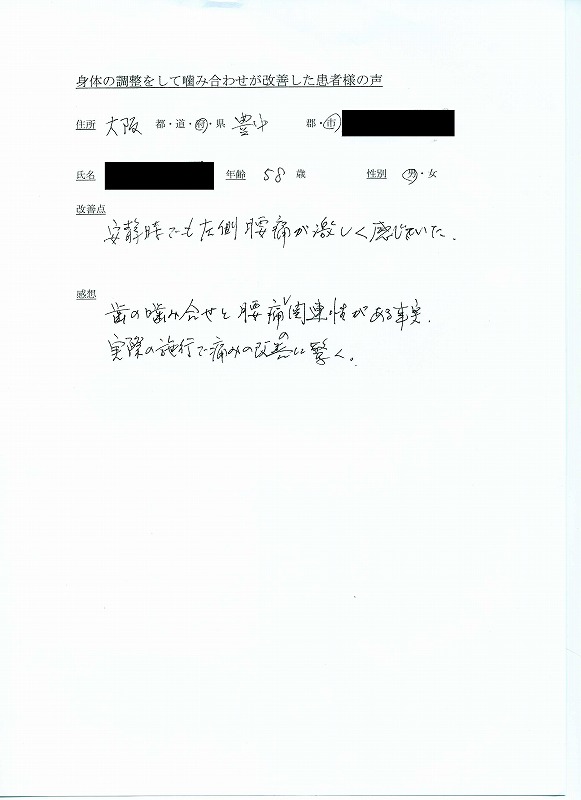 身体の調整をして噛み合わせが改善した患者様の声
住所 大阪 都・道・府・県 豊中 郡・市
氏名 年齢 58 歳 性別 男・女
改善点
安静時でも左側腰痛が激しく感じていた.
感想
歯の噛み合せと腰痛の関連性がある事実.
実際の施行で痛みの改善に驚く。